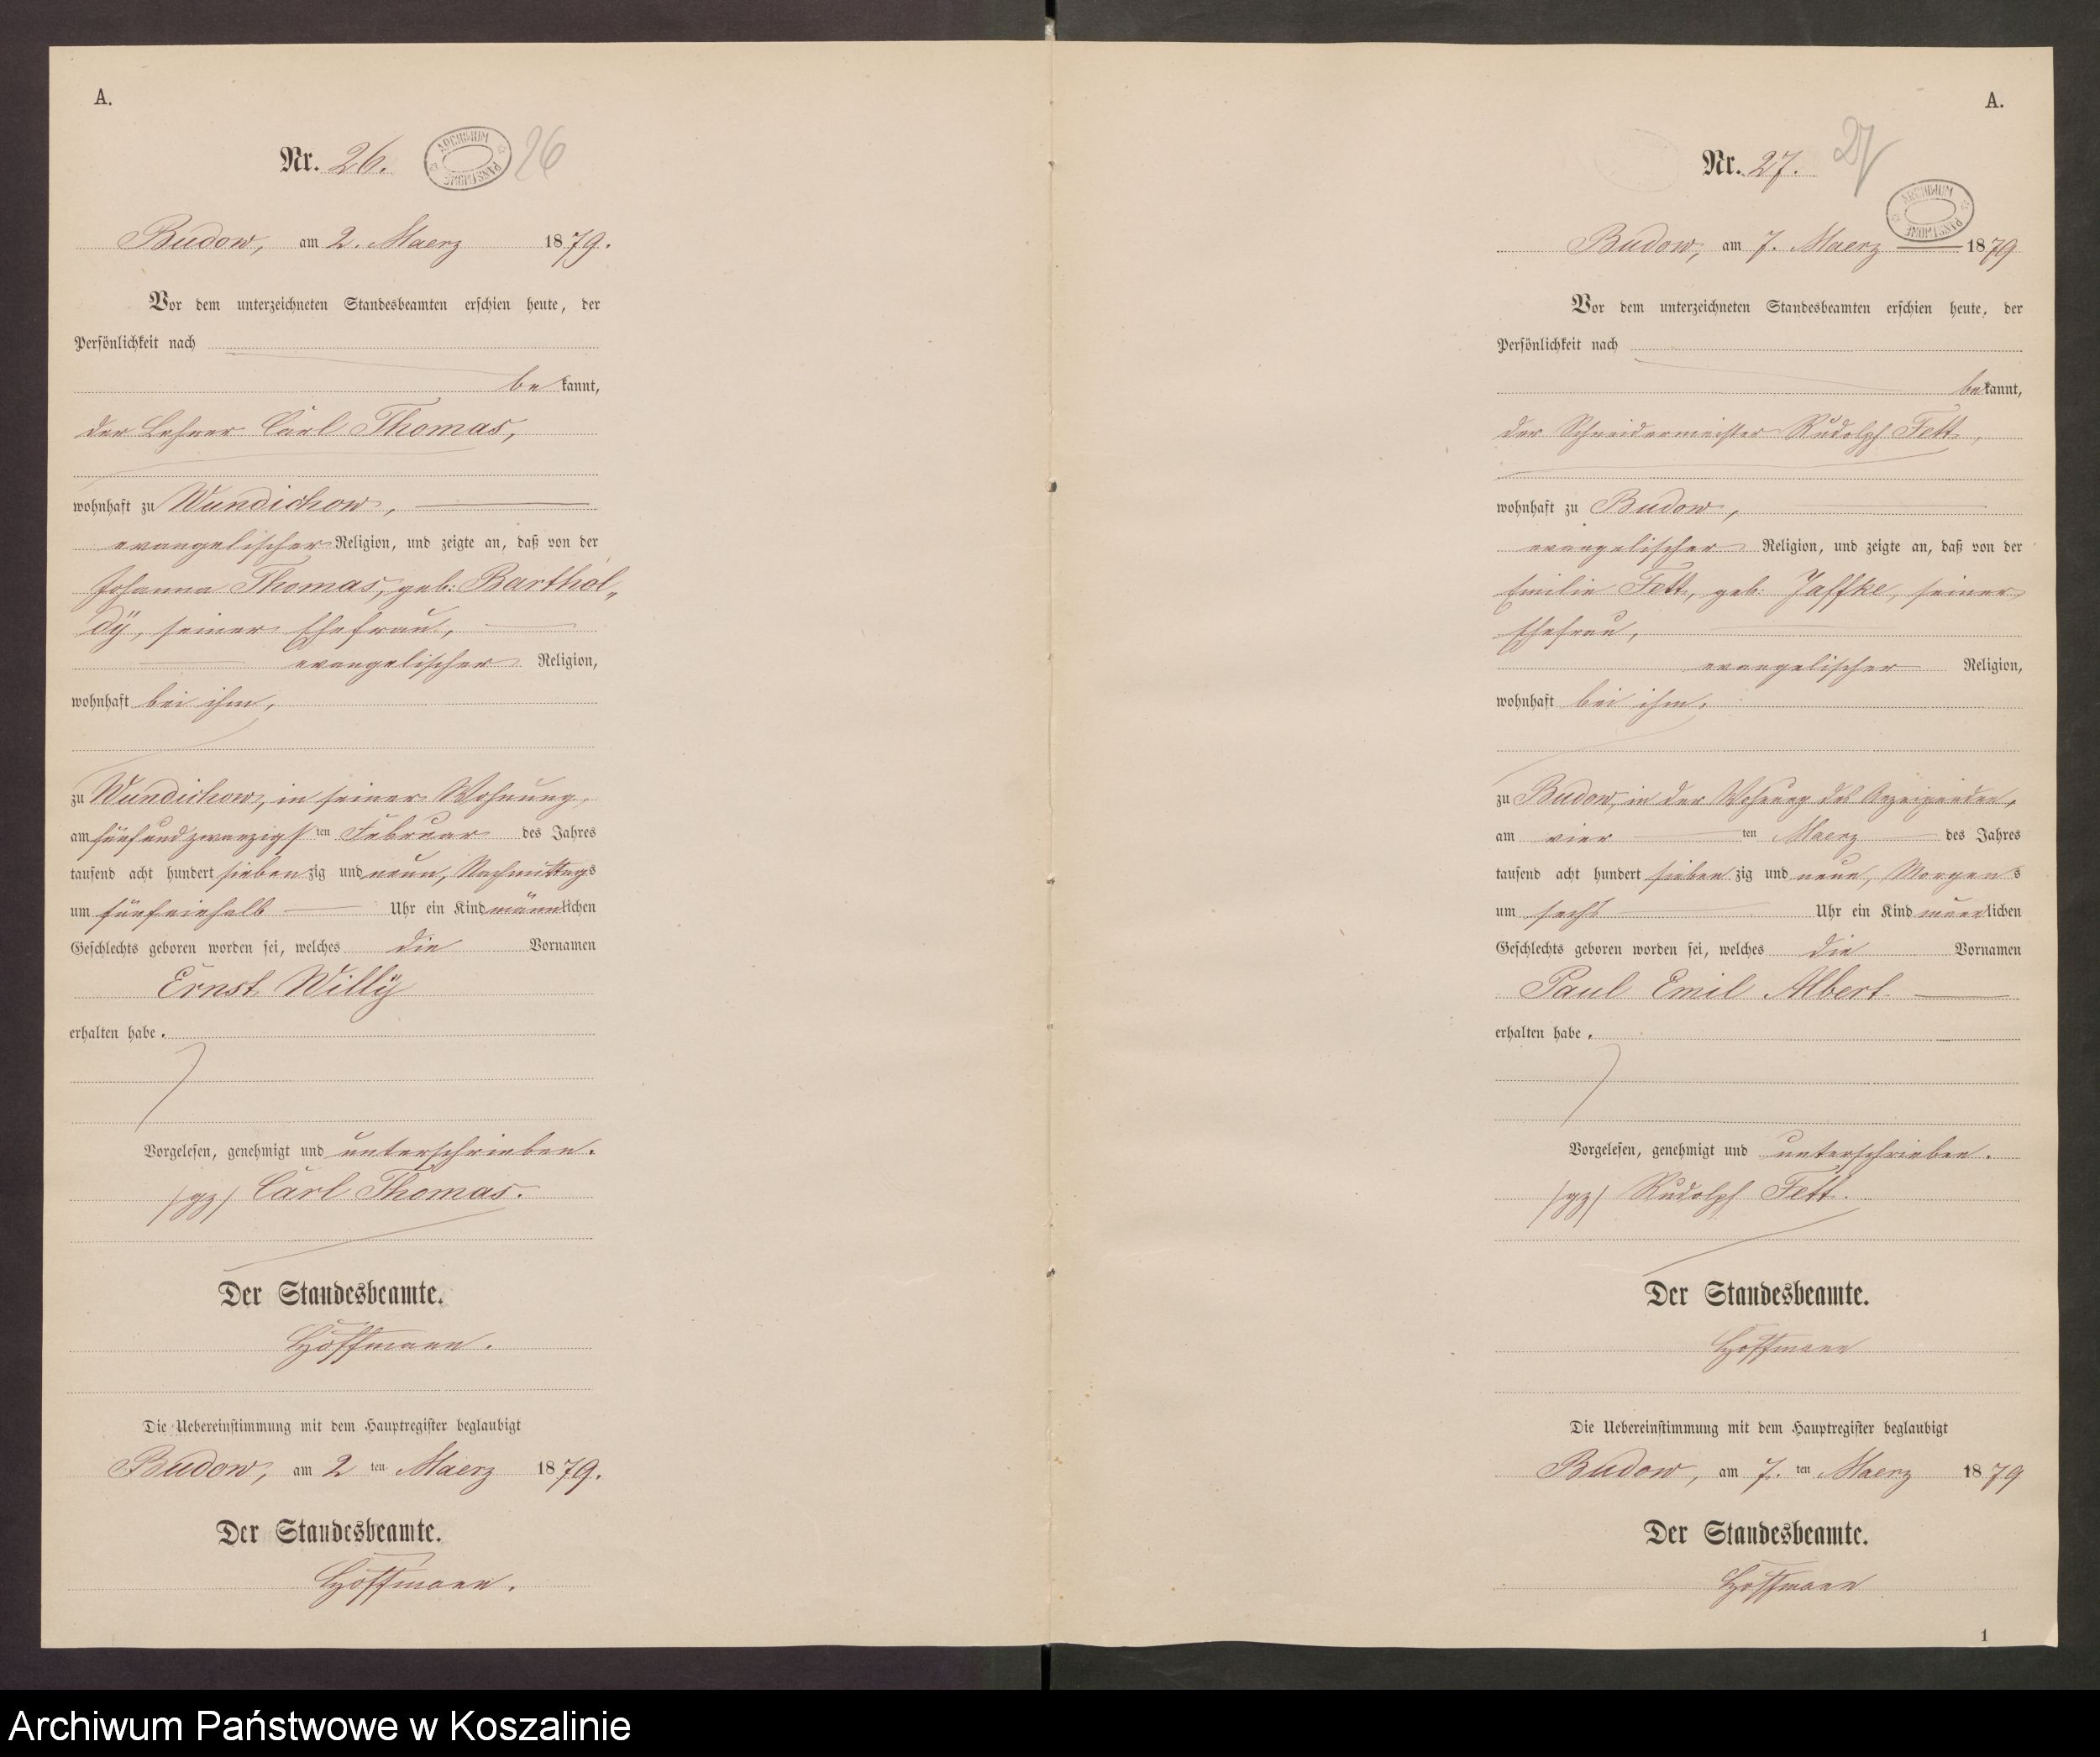 A.
Nr. 26.
ARCHIWUM PAŃSTWOWE
26
Budow, am 2. Maerz 1879.
Vor dem unterzeichneten Standesbeamten erschien heute, der
Persönlichkeit nach
bekannt,
der Lehrer Carl Thomas,
wohnhaft zu Wundichow,
evangelischer Religion, und zeigte an, daß von der
Johanna Thomas, geb: Barthol„
dÿ, seiner Ehefrau,
evangelischer Religion,
wohnhaft bei ihm,
zu Wundichow, in seiner Wohnung,
am fünfundzwanzigsten Februar des Jahres
tausend acht hundert siebenzig und neun, Nachmittags
um fünfeinhalb Uhr ein Kind männlichen
Geschlechts geboren worden sei, welches die Vornamen
Ernst Willÿ
erhalten habe.
Vorgelesen, genehmigt und unterschrieben.
/gz/ Carl Thomas.
Der Standesbeamte.
Hoffmann.
Die Uebereinstimmung mit dem Hauptregister beglaubigt
Budow, am 2ten Maerz 1879.
Der Standesbeamte.
Hoffmann.
A.
Nr. 27.
27
ARCHIWUM PAŃSTWOWE
Budow, am 7. Maerz 1879
Vor dem unterzeichneten Standesbeamten erschien heute, der
Persönlichkeit nach
bekannt,
der Schneidermeister Rudolph Fett,
wohnhaft zu Budow,
evangelischer Religion, und zeigte an, daß von der
Emilie Fett, geb: Jaffke, seiner
Ehefrau,
evangelischer Religion,
wohnhaft bei ihm,
zu Budow, in der Wohnung des Anzeigenden,
am vierten Maerz des Jahres
tausend acht hundert siebenzig und neun, Morgens
um sechs Uhr ein Kind männlichen
Geschlechts geboren worden sei, welches die Vornamen
Paul Emil Albert
erhalten habe.
Vorgelesen, genehmigt und unterschrieben.
/gz/ Rudolph Fett.
Der Standesbeamte.
Hoffmann
Die Uebereinstimmung mit dem Hauptregister beglaubigt
Budow, am 7.ten Maerz 1879
Der Standesbeamte.
Hoffmann
1
Archiwum Państwowe w Koszalinie